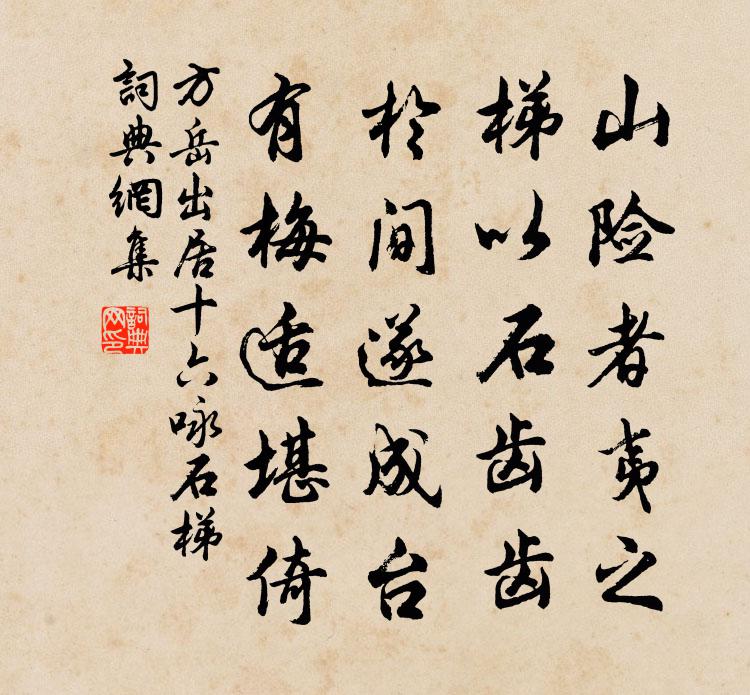 山险者夷之
梯以石齿齿
于间遂成台
有梅适堪倚
方岳出居十六咏石梯
詞典網集
詞典网印